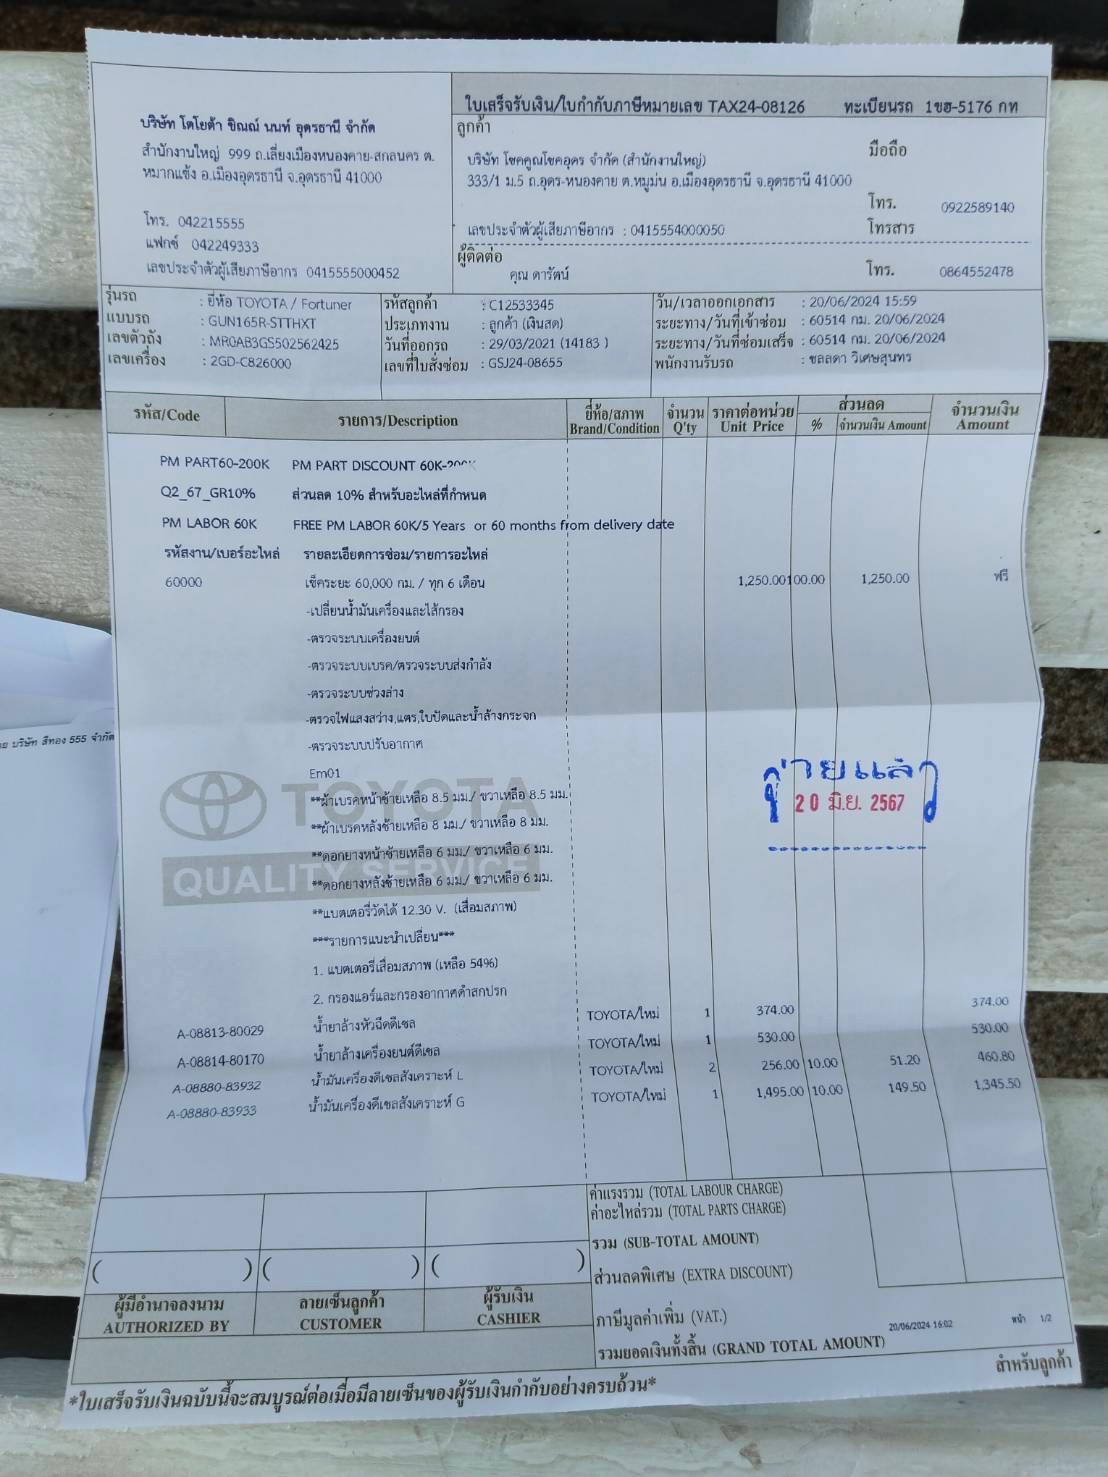 ใบเสร็จรับเงิน/ใบกำกับภาษีหมายเลข TAX24-08126 ทะเบียนรถ 1ขฮ-5176 กท
บริษัท โตโยต้า ชิณณ์ นนท์ อุดรธานี จำกัด
สำนักงานใหญ่ 999 ถ.เลี่ยงเมืองหนองคาย-สกลนคร ต.
หมากแข้ง อ.เมืองอุดรธานี จ.อุดรธานี 41000
โทร. 042215555
แฟกซ์ 042249333
เลขประจำตัวผู้เสียภาษีอากร 0415555000452
ลูกค้า
บริษัท โชคคูณโชคอุดร จำกัด (สำนักงานใหญ่)
333/1 ม.5 ถ.อุดร-หนองคาย ต.หมูม่น อ.เมืองอุดรธานี จ.อุดรธานี 41000
มือถือ
โทร. 0922589140
เลขประจำตัวผู้เสียภาษีอากร : 0415554000050 โทรสาร
ผู้ติดต่อ
คุณ ดารัตน์ โทร. 0864552478
รุ่นรถ : ยี่ห้อ TOYOTA / Fortuner รหัสลูกค้า : C12533345 วัน/เวลาออกเอกสาร : 20/06/2024 15:59
แบบรถ : GUN165R-STTHXT ประเภทงาน : ลูกค้า (เงินสด) ระยะทาง/วันที่เข้าซ่อม : 60514 กม. 20/06/2024
เลขตัวถัง : MR0AB3GS502562425 วันที่ออกรถ : 29/03/2021 (14183 ) ระยะทาง/วันที่ซ่อมเสร็จ : 60514 กม. 20/06/2024
เลขเครื่อง : 2GD-C826000 เลขที่ใบสั่งซ่อม : GSJ24-08655 พนักงานรับรถ : ชลลดา วิเศษสุนทร
รหัส/Code รายการ/Description ยี่ห้อ/สภาพ Brand/Condition จำนวน Q'ty ราคาต่อหน่วย Unit Price ส่วนลด % จำนวนเงิน Amount จำนวนเงิน Amount
PM PART60-200K PM PART DISCOUNT 60K-200K
Q2_67_GR10% ส่วนลด 10% สำหรับอะไหล่ที่กำหนด
PM LABOR 60K FREE PM LABOR 60K/5 Years or 60 months from delivery date
รหัสงาน/เบอร์อะไหล่ รายละเอียดการซ่อม/รายการอะไหล่
60000 เช็คระยะ 60,000 กม. / ทุก 6 เดือน 1,250.00 100.00 1,250.00 ฟรี
-เปลี่ยนน้ำมันเครื่องและไส้กรอง
-ตรวจระบบเครื่องยนต์
-ตรวจระบบเบรค/ตรวจระบบส่งกำลัง
-ตรวจระบบช่วงล่าง
-ตรวจไฟแสงสว่าง,แตร,ใบปัดและน้ำล้างกระจก
-ตรวจระบบปรับอากาศ
Em01
**ผ้าเบรคหน้าซ้ายเหลือ 8.5 มม./ ขวาเหลือ 8.5 มม.
**ผ้าเบรคหลังซ้ายเหลือ 8 มม./ ขวาเหลือ 8 มม.
**ดอกยางหน้าซ้ายเหลือ 6 มม./ ขวาเหลือ 6 มม.
**ดอกยางหลังซ้ายเหลือ 6 มม./ ขวาเหลือ 6 มม.
**แบตเตอรี่วัดได้ 12.30 V. (เสื่อมสภาพ)
***รายการแนะนำเปลี่ยน***
1. แบตเตอรี่เสื่อมสภาพ (เหลือ 54%)
2. กรองแอร์และกรองอากาศดำสกปรก
TOYOTA
QUALITY SERVICE
จ่ายแล้ว
20 มิ.ย. 2567
A-08813-80029 น้ำยาล้างหัวฉีดดีเซล TOYOTA/ใหม่ 1 374.00 374.00
A-08814-80170 น้ำยาล้างเครื่องยนต์ดีเซล TOYOTA/ใหม่ 1 530.00 530.00
A-08880-83932 น้ำมันเครื่องดีเซลสังเคราะห์ L TOYOTA/ใหม่ 2 256.00 10.00 51.20 460.80
A-08880-83933 น้ำมันเครื่องดีเซลสังเคราะห์ G TOYOTA/ใหม่ 1 1,495.00 10.00 149.50 1,345.50
ค่าแรงรวม (TOTAL LABOUR CHARGE)
ค่าอะไหล่รวม (TOTAL PARTS CHARGE)
รวม (SUB-TOTAL AMOUNT)
ส่วนลดพิเศษ (EXTRA DISCOUNT)
ภาษีมูลค่าเพิ่ม (VAT.)
รวมยอดเงินทั้งสิ้น (GRAND TOTAL AMOUNT)
( ) ( ) ( )
ผู้มีอำนาจลงนาม ลายเซ็นลูกค้า ผู้รับเงิน
AUTHORIZED BY CUSTOMER CASHIER
20/06/2024 16:02 หน้า 1/2
สำหรับลูกค้า
*ใบเสร็จรับเงินฉบับนี้จะสมบูรณ์ต่อเมื่อมีลายเซ็นของผู้รับเงินกำกับอย่างครบถ้วน*
บริษัท สีทอง 555 จำกัด